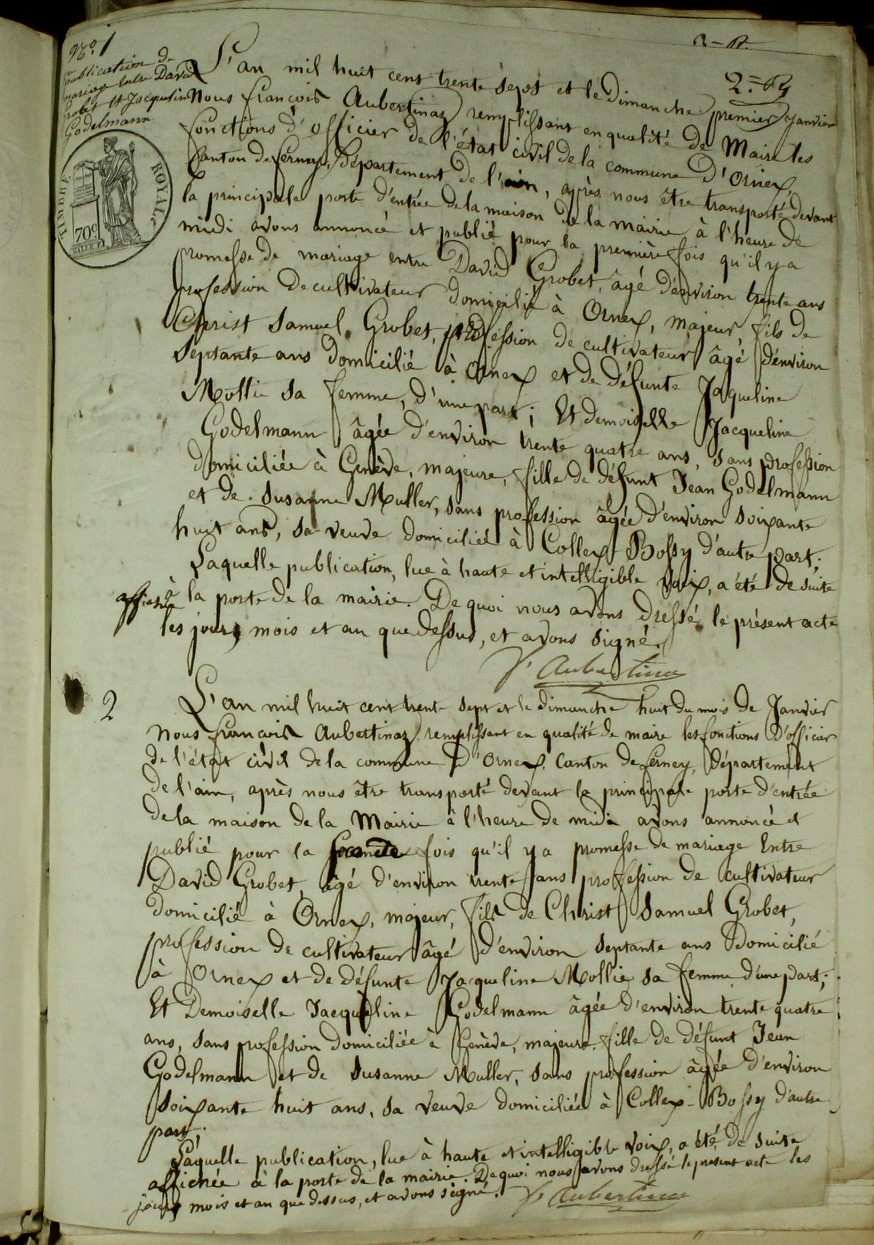 N°. 1
publication de
mariage entre David
Grobet et Jacqueline
Godelmann
TIMBRE ROYAL
70c
L'an mil huit cent trente sept et le dimanche premier janvier
Nous françois Aubertinaz remplissant en qualité de Maire les
fonctions d'officier de l'état civil de la commune D'Ornex,
Canton de Ferney, Département de l'ain, après nous être transporté devant
la principale porte d'entrée de la maison de la mairie à l'heure de
midi avons annoncé et publié pour la première fois qu'il y a
promesse de mariage entre David Grobet, âgé d'environ trente ans
profession de cultivateur domicilié à Ornex, majeur, fils de
Christ Samuel Grobet, profession de cultivateur âgé d'environ
Septante ans domicilié à Ornex et de défunte Jaqueline
Mollie sa femme, d'une part; Et demoiselle Jacqueline
Godelmann âgée d'environ trente quatre ans, sans profession
domiciliée à Genève, majeure, fille de défunt Jean Godelmann
et de Susanne Muller, sans profession âgée d'environ soixante
huit ans, sa veuve domiciliée à Collex-Bossy d'autre part.
Laquelle publication, lue à haute et intelligible voix, a été de suite
affichée à la porte de la mairie. De quoi nous avons dressé le présent acte
les jours mois et an que dessus, et avons signé.
f. Aubertinaz
2
L'an mil huit cent trente sept et le dimanche huit du mois de Janvier
Nous françois Aubertinaz remplissant en qualité de maire les fonctions D'officier
de l'état civil de la commune D'Ornex, Canton de Ferney, Département
de l'ain, après nous être transporté devant la principale porte d'entrée
de la maison de la Mairie à l'heure de midi avons annoncé et
publié pour la seconde fois qu'il y a promesse de mariage Entre
David Grobet, âgé d'environ trente ans profession de cultivateur
domicilié à Ornex, majeur, fils de Christ Samuel Grobet,
profession de cultivateur âgé d'environ septante ans Domicilié
à Ornex et de défunte Jacqueline Mollie sa femme d'une part;
Et Demoiselle Jacqueline Godelmann âgée d'environ trente quatre
ans, sans profession domiciliée à Genève, majeure, fille de défunt Jean
Godelmann et de Susanne Muller, sans profession âgée d'environ
soixante huit ans, sa veuve domiciliée à Collex-Bossy d'autre
part.
Laquelle publication, lue à haute et intelligible voix, a été de suite
affichée à la porte de la mairie. De quoi nous avons dressé le présent acte les
jours mois et an que dessus, et avons signé.
f. Aubertinaz